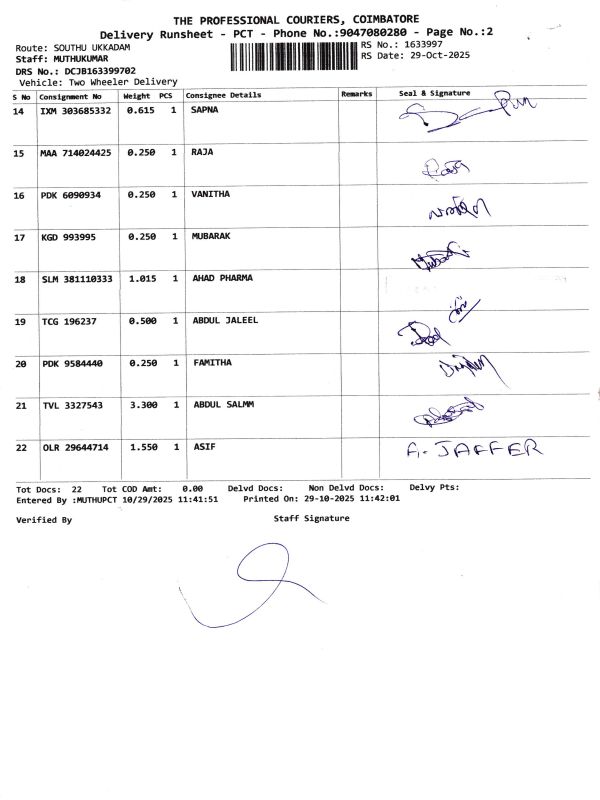 THE PROFESSIONAL COURIERS, COIMBATORE
Delivery Runsheet - PCT - Phone No.:9047080280 - Page No.:2
Route: SOUTHU UKKADAM
RS No.: 1633997
Staff: MUTHUKUMAR
RS Date: 29-Oct-2025
DRS No.: DCJB163399702
Vehicle: Two Wheeler Delivery
S No Consignment No Weight PCS Consignee Details Remarks Seal & Signature
14 IXM 303685332 0.615 1 SAPNA
15 MAA 714024425 0.250 1 RAJA
16 PDK 6090934 0.250 1 VANITHA
17 KGD 993995 0.250 1 MUBARAK
18 SLM 381110333 1.015 1 AHAD PHARMA
19 TCG 196237 0.500 1 ABDUL JALEEL
20 PDK 9584440 0.250 1 FAMITHA
21 TVL 3327543 3.300 1 ABDUL SALMM
22 OLR 29644714 1.550 1 ASIF A. JAFFER
Tot Docs: 22 Tot COD Amt: 0.00 Delvd Docs: Non Delvd Docs: Delvy Pts:
Entered By :MUTHUPCT 10/29/2025 11:41:51 Printed On: 29-10-2025 11:42:01
Verified By Staff Signature